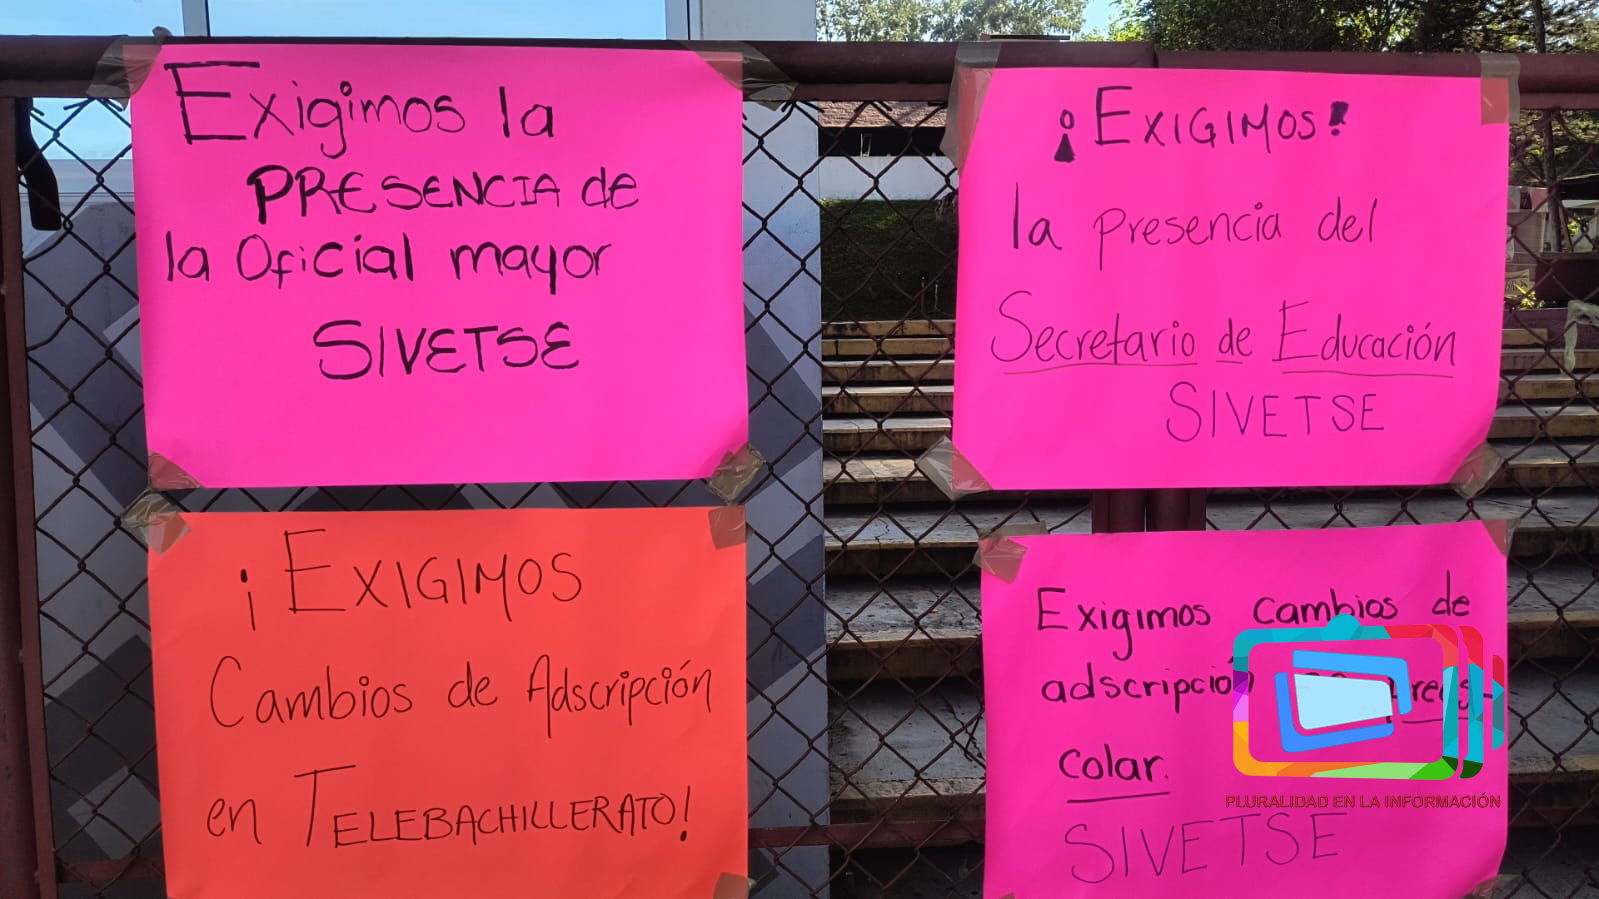 Exigimos la
PRESENCIA de
la Oficial mayor
SIVETSE
¡EXIGIMOS!
la presencia del
Secretario de Educación
SIVETSE
¡EXIGIMOS
Cambios de Adscripción
en TELEBACHILLERATO!
Exigimos cambios de
adscripción
colar.
SIVETSE
PLURALIDAD EN LA INFORMACIÓN